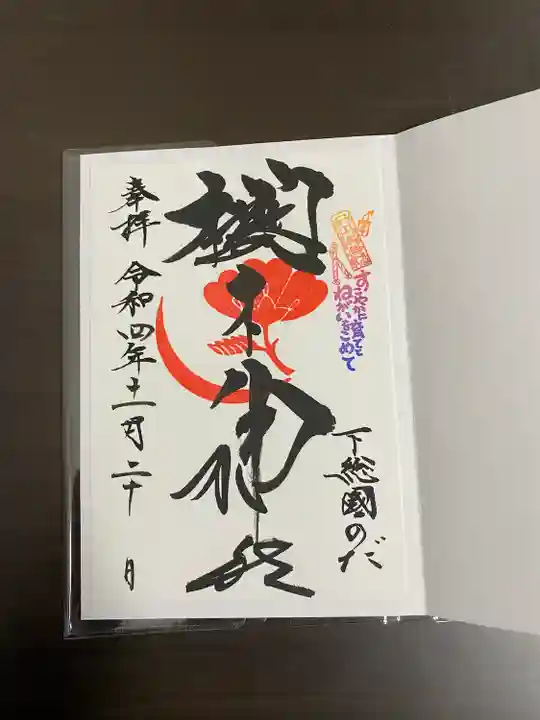 すこやかに育てと
ねがいをこめて
下総國のだ
櫻木神社
奉拝 令和四年十一月二十 日